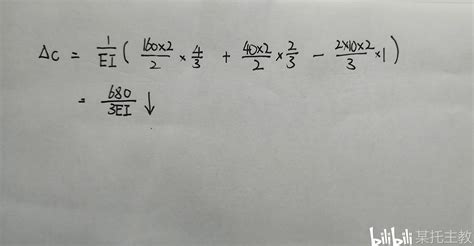 Δc = 1/EI ( 160×2/2 × 4/3 + 40×2/2 × 2/3 − 2×10×2/3 ×1 )
= 680/3EI ↓
bilibili 某托主教